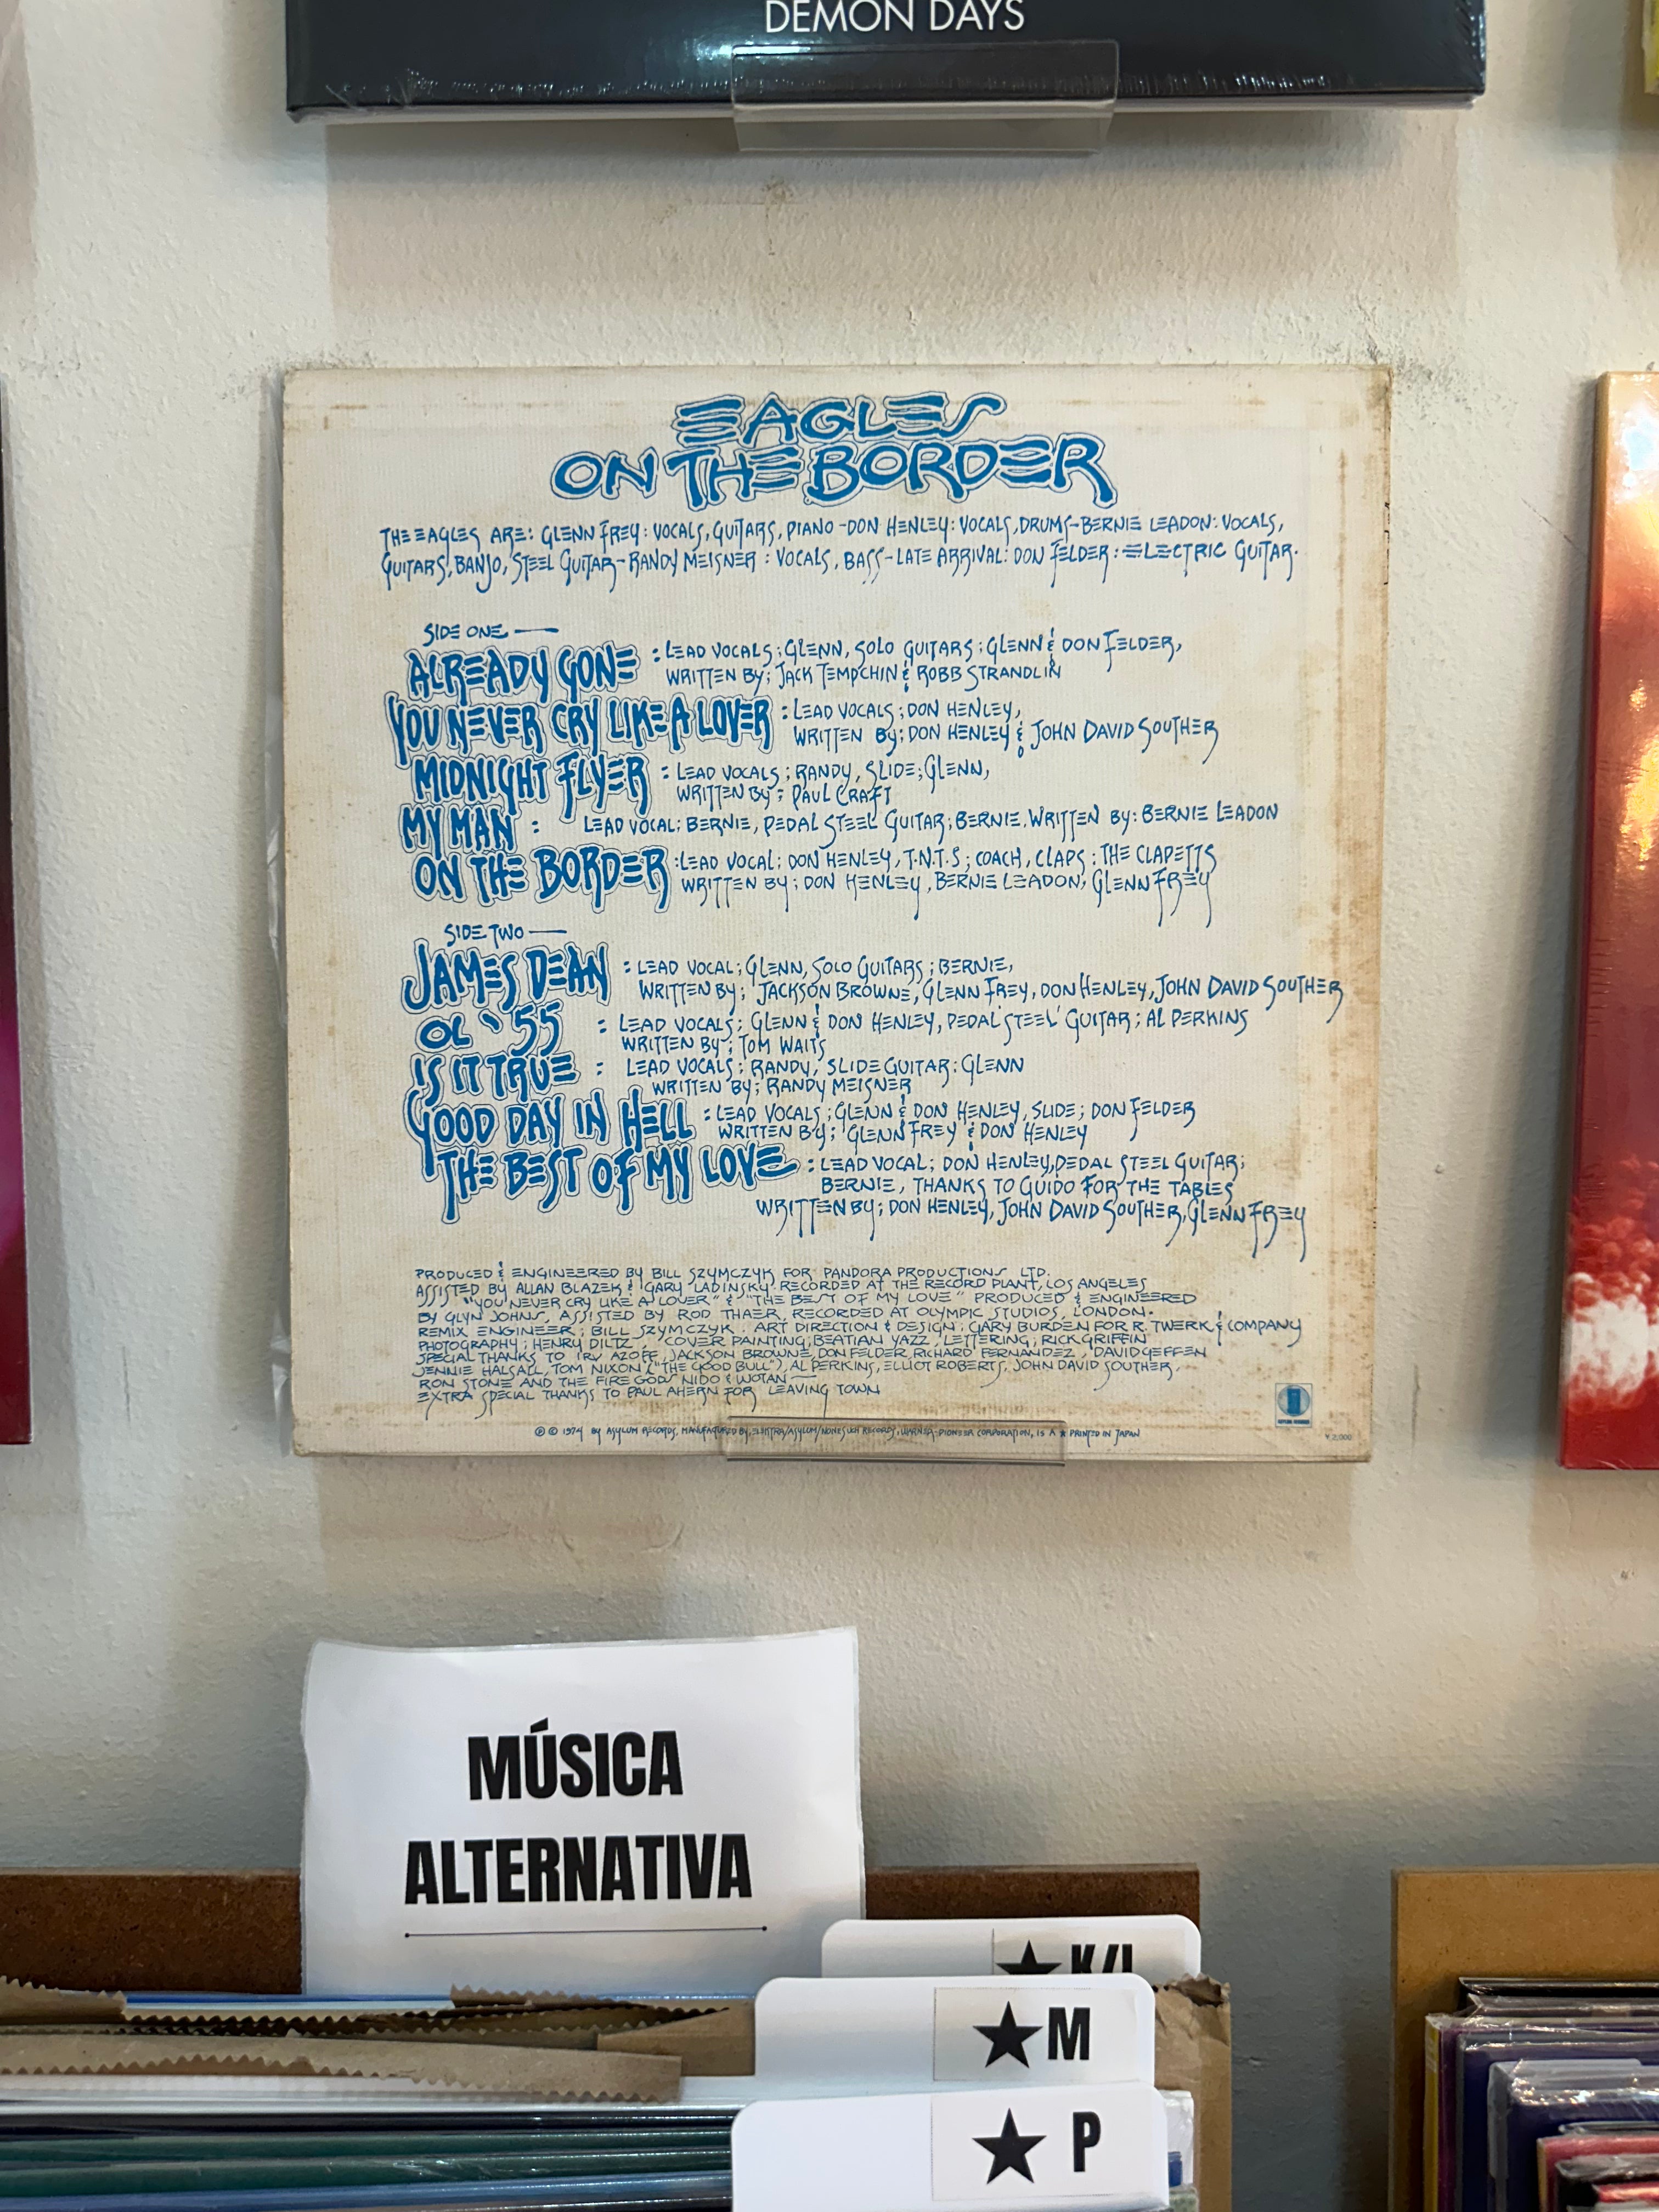 DEMON DAYS
EAGLES
ON THE BORDER
THE EAGLES ARE: GLENN FREY: VOCALS, GUITARS, PIANO - DON HENLEY: VOCALS, DRUMS - BERNIE LEADON: VOCALS,
GUITARS, BANJO, STEEL GUITAR - RANDY MEISNER: VOCALS, BASS - LATE ARRIVAL: DON FELDER: ELECTRIC GUITAR.
SIDE ONE —
ALREADY GONE : LEAD VOCALS; GLENN, SOLO GUITARS; GLENN & DON FELDER,
WRITTEN BY; JACK TEMPCHIN & ROBB STRANDLIN
YOU NEVER CRY LIKE A LOVER : LEAD VOCALS; DON HENLEY,
WRITTEN BY; DON HENLEY & JOHN DAVID SOUTHER
MIDNIGHT FLYER : LEAD VOCALS; RANDY, SLIDE; GLENN,
WRITTEN BY; PAUL CRAFT
MY MAN : LEAD VOCAL; BERNIE, PEDAL STEEL GUITAR; BERNIE, WRITTEN BY: BERNIE LEADON
ON THE BORDER : LEAD VOCAL; DON HENLEY, T.N.T.S; COACH, CLAPS: THE CLAPETTS
WRITTEN BY; DON HENLEY, BERNIE LEADON, GLENN FREY
SIDE TWO —
JAMES DEAN : LEAD VOCAL; GLENN, SOLO GUITARS; BERNIE,
WRITTEN BY; JACKSON BROWNE, GLENN FREY, DON HENLEY, JOHN DAVID SOUTHER
OL '55 : LEAD VOCALS; GLENN & DON HENLEY, PEDAL STEEL GUITAR; AL PERKINS
WRITTEN BY; TOM WAITS
IS IT TRUE : LEAD VOCALS; RANDY, SLIDE GUITAR: GLENN
WRITTEN BY; RANDY MEISNER
GOOD DAY IN HELL : LEAD VOCALS; GLENN & DON HENLEY, SLIDE; DON FELDER
WRITTEN BY; GLENN FREY & DON HENLEY
THE BEST OF MY LOVE : LEAD VOCAL; DON HENLEY, PEDAL STEEL GUITAR;
BERNIE, THANKS TO GUIDO FOR THE TABLES
WRITTEN BY; DON HENLEY, JOHN DAVID SOUTHER, GLENN FREY
PRODUCED & ENGINEERED BY BILL SZYMCZYK FOR PANDORA PRODUCTIONS LTD.
ASSISTED BY ALLAN BLAZEK & GARY LADINSKY. RECORDED AT THE RECORD PLANT, LOS ANGELES
"YOU NEVER CRY LIKE A LOVER" & "THE BEST OF MY LOVE" PRODUCED & ENGINEERED
BY GLYN JOHNS, ASSISTED BY ROD THAER, RECORDED AT OLYMPIC STUDIOS, LONDON.
REMIX ENGINEER; BILL SZYMCZYK. ART DIRECTION & DESIGN; GARY BURDEN FOR R. TWERK & COMPANY
PHOTOGRAPHY; HENRY DILTZ COVER PAINTING; BEATIAN YAZZ LETTERING; RICK GRIFFIN
SPECIAL THANKS TO IRV AZOFF, JACKSON BROWNE, DON FELDER, RICHARD FERNANDEZ, DAVID GEFFEN
JENNIE HALSALL, TOM NIXON ("THE GOOD BULL"), AL PERKINS, ELLIOT ROBERTS, JOHN DAVID SOUTHER,
RON STONE AND THE FIRE GODS NIDO & WOTAN —
EXTRA SPECIAL THANKS TO PAUL AHERN FOR LEAVING TOWN
ASYLUM RECORDS
℗ © 1974 BY ASYLUM RECORDS, MANUFACTURED BY, ELEKTRA/ASYLUM/NONESUCH RECORDS, WARNER-PIONEER CORPORATION, IS A ★ PRINTED IN JAPAN
¥2,000
MÚSICA
ALTERNATIVA
★ K/L
★ M
★ P